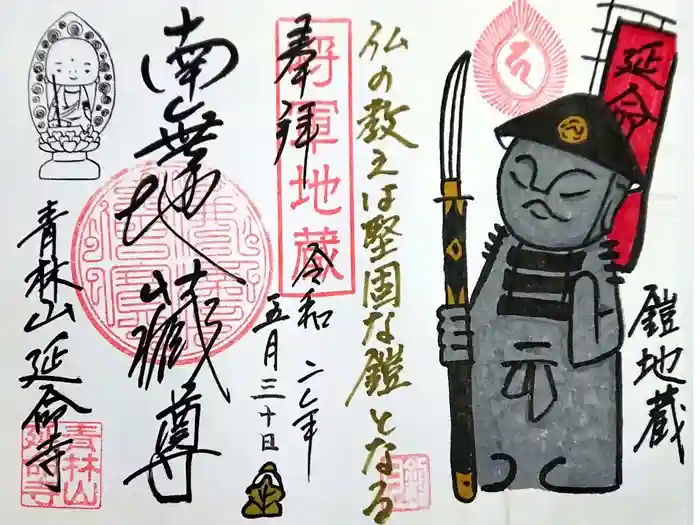 延命
鎧地蔵
仏の教えは堅固な鎧となる
奉拝
将軍地蔵
令和二年
五月三十日
南無地蔵尊
青林山延命寺
青林山
延命寺